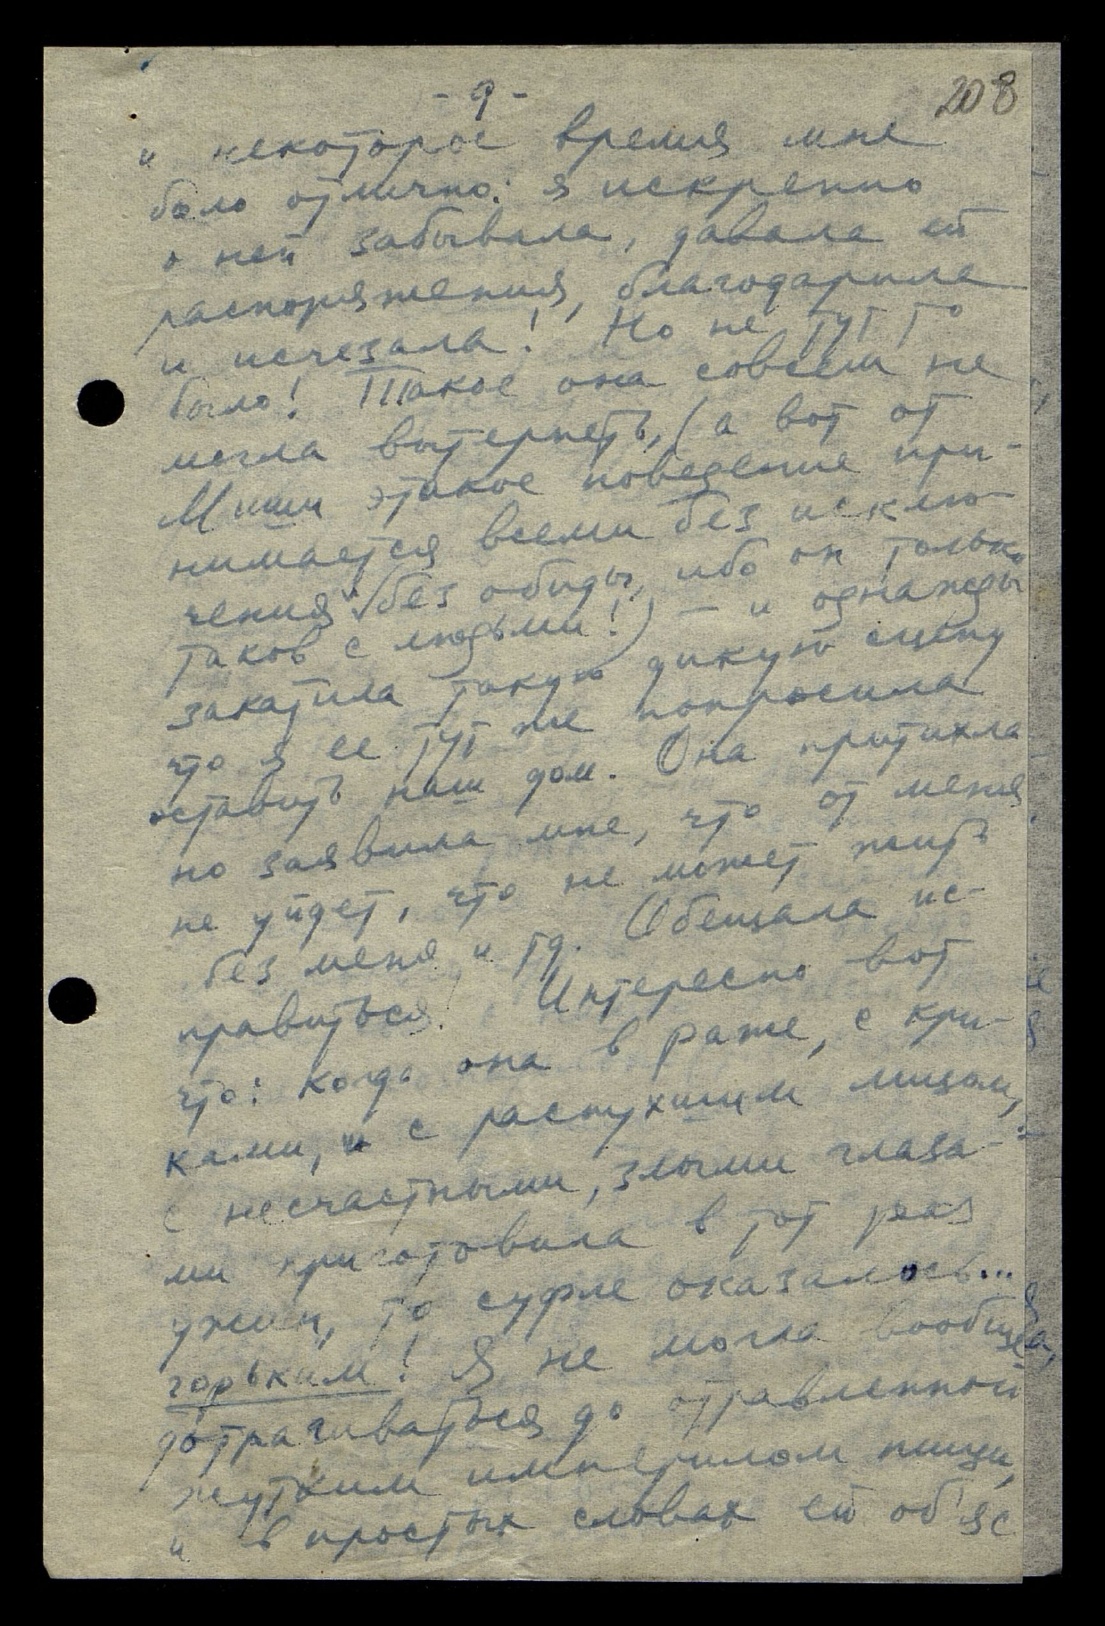 - 9 -
208
и некоторое время мне
было отлично: я искренно
о ней забывала, давала ей
распоряжения, благодарила
и исчезала! Но не тут то
было! Такое она совсем не
могла вытерпеть, (а вот от
Миши этакое поведение при-
нимается всеми без исклю-
чения √без обиды, ибо он только
таков с людьми!) – и однажды
закатила такую дикую сцену
что я ее тут же попросила
оставить наш дом. Она притихла
но заявила мне, что от меня
не уйдет, что не может жить
без меня и тд. Обещала ис-
правиться! Интересно вот
что: когда она в раже, с кри-
ками, и с распухшим лицом,
с несчастными, злыми глаза-
ми приготовила в тот раз
ужин, то суфле оказалось...
горьким! Я не могла вообще
дотрагиваться до отравленной
жутким империлом пищи,
и в простых словах ей об'яс